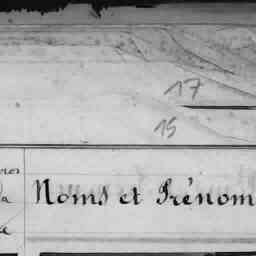 17
15
Noms et Prénom